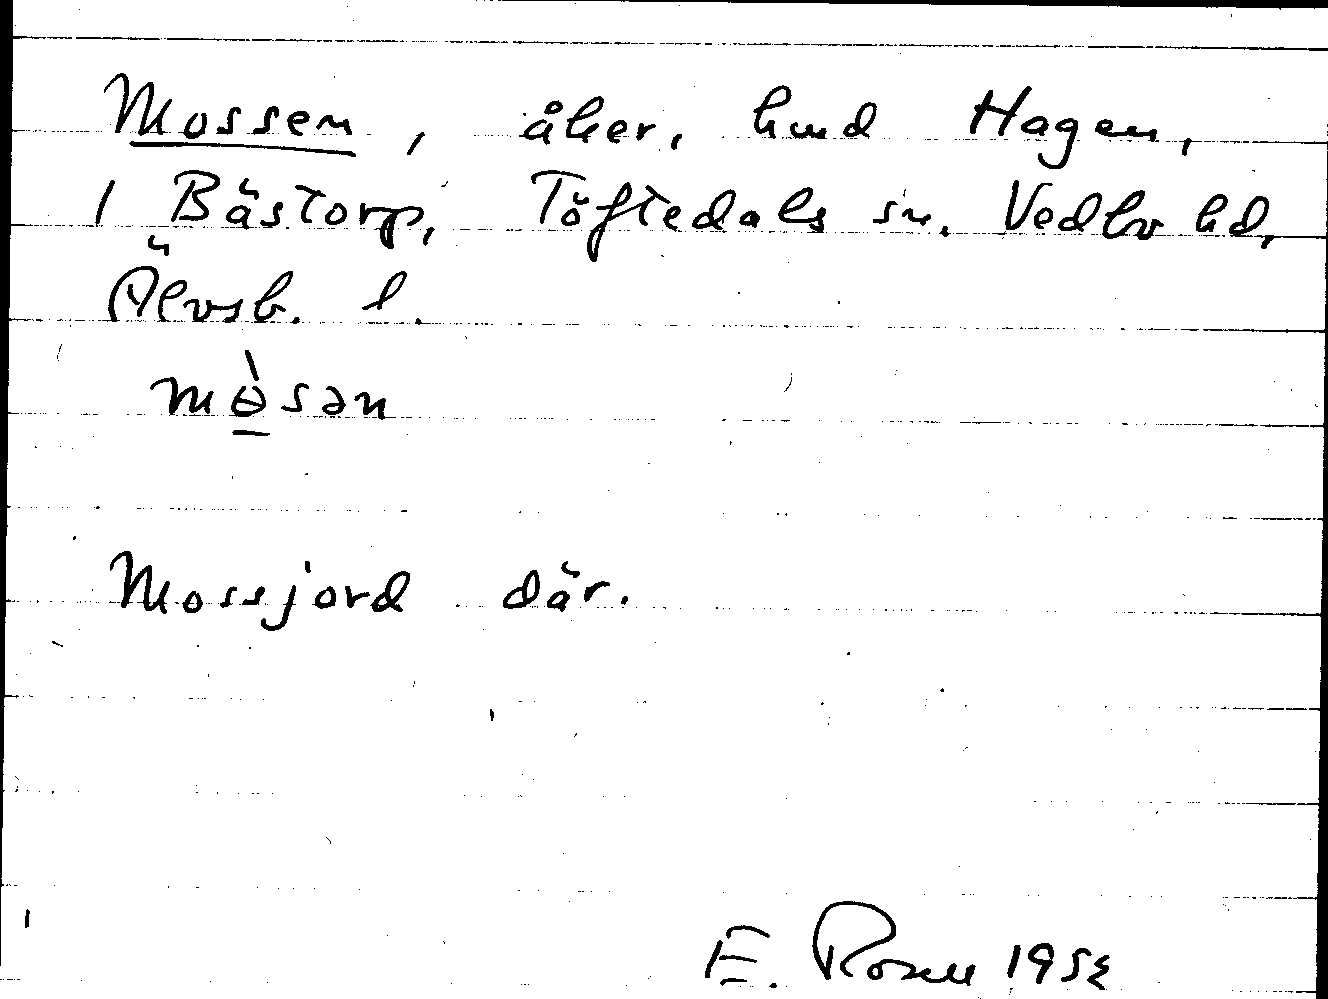 Mossen, åker, hmd Hagen,
1 Bästorp, Töftedals sn. Vedbo hd,
Älvsb. l.
mɵ̀sən
Mossjord där.
E. Rosell 1954